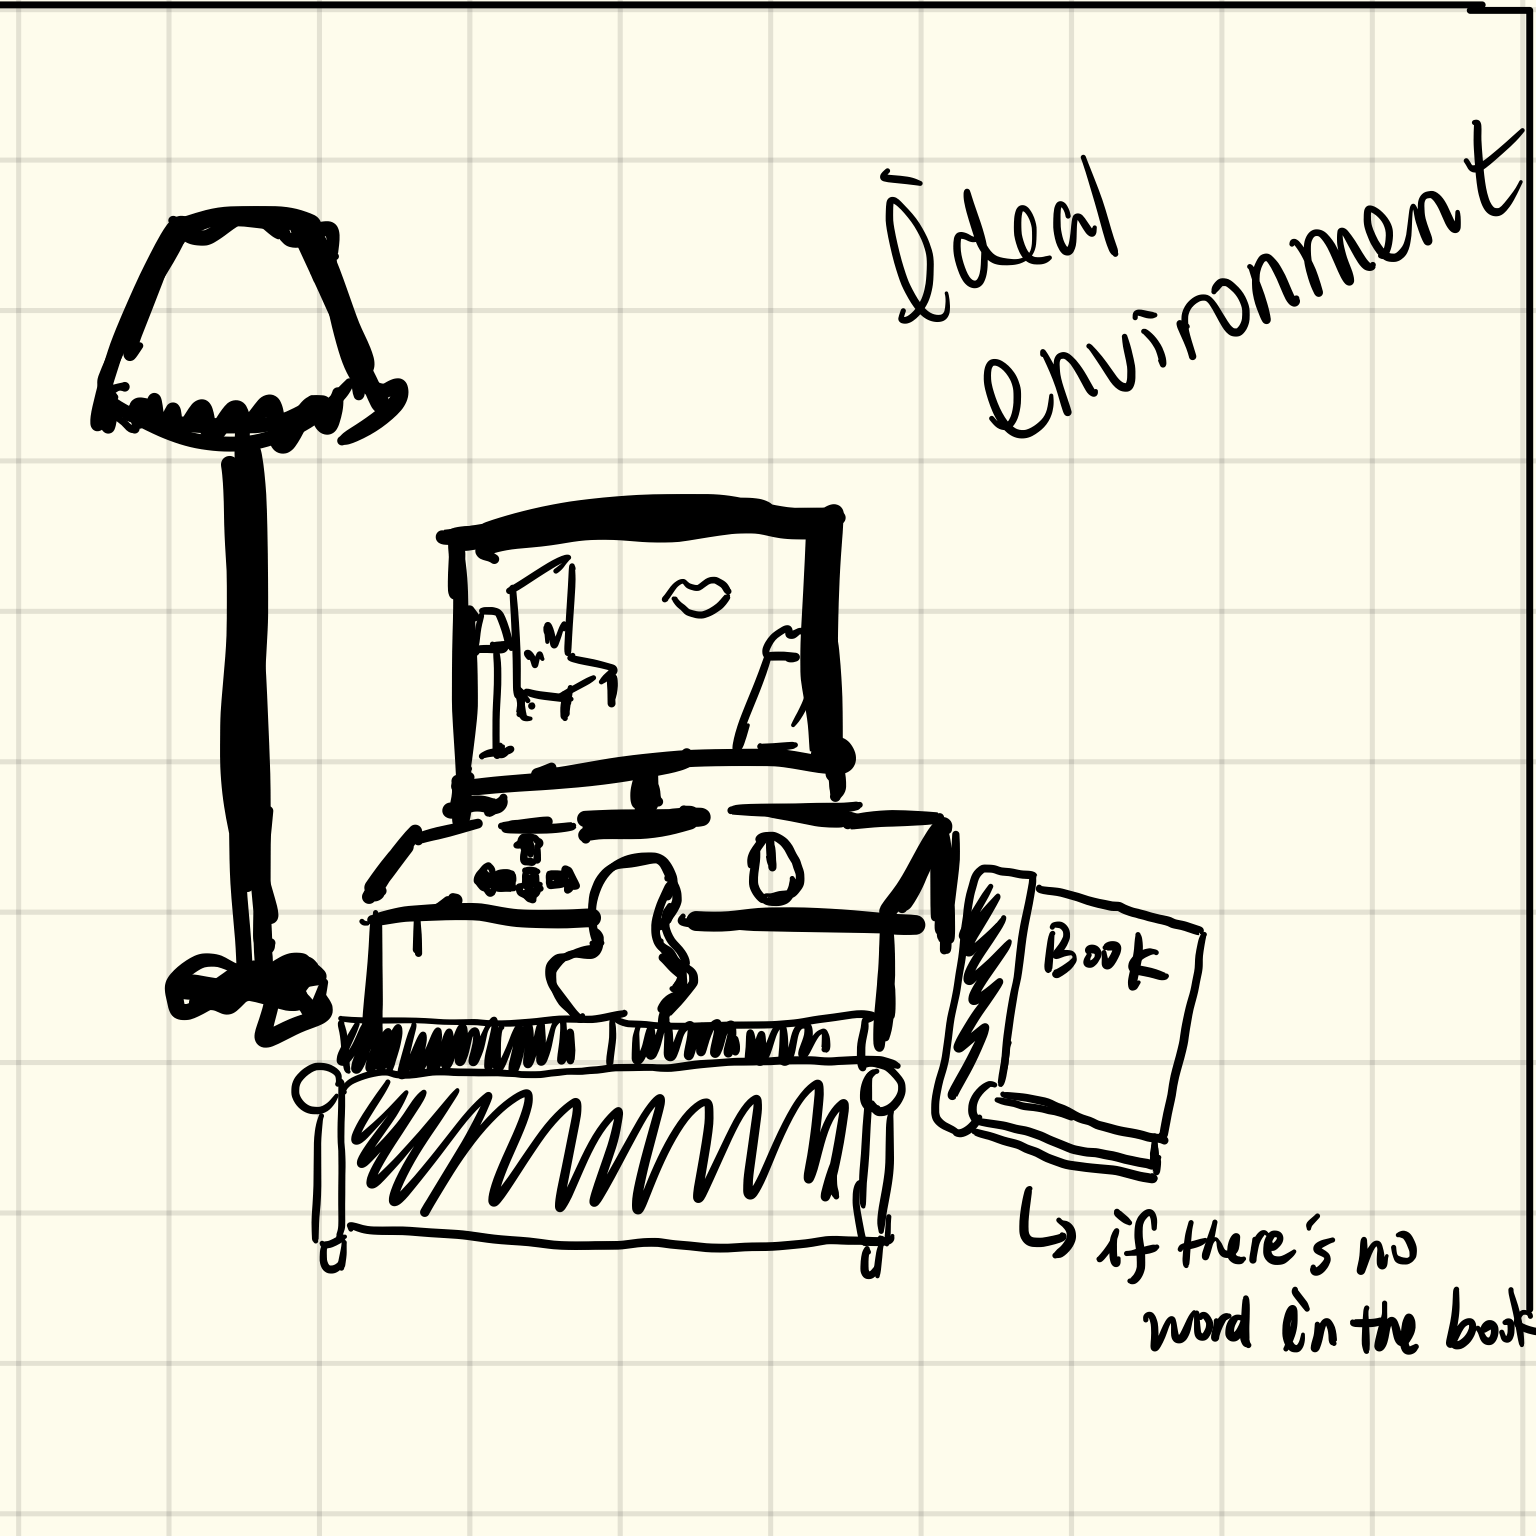 Ideal
environment
Book
if there's no
word in the book